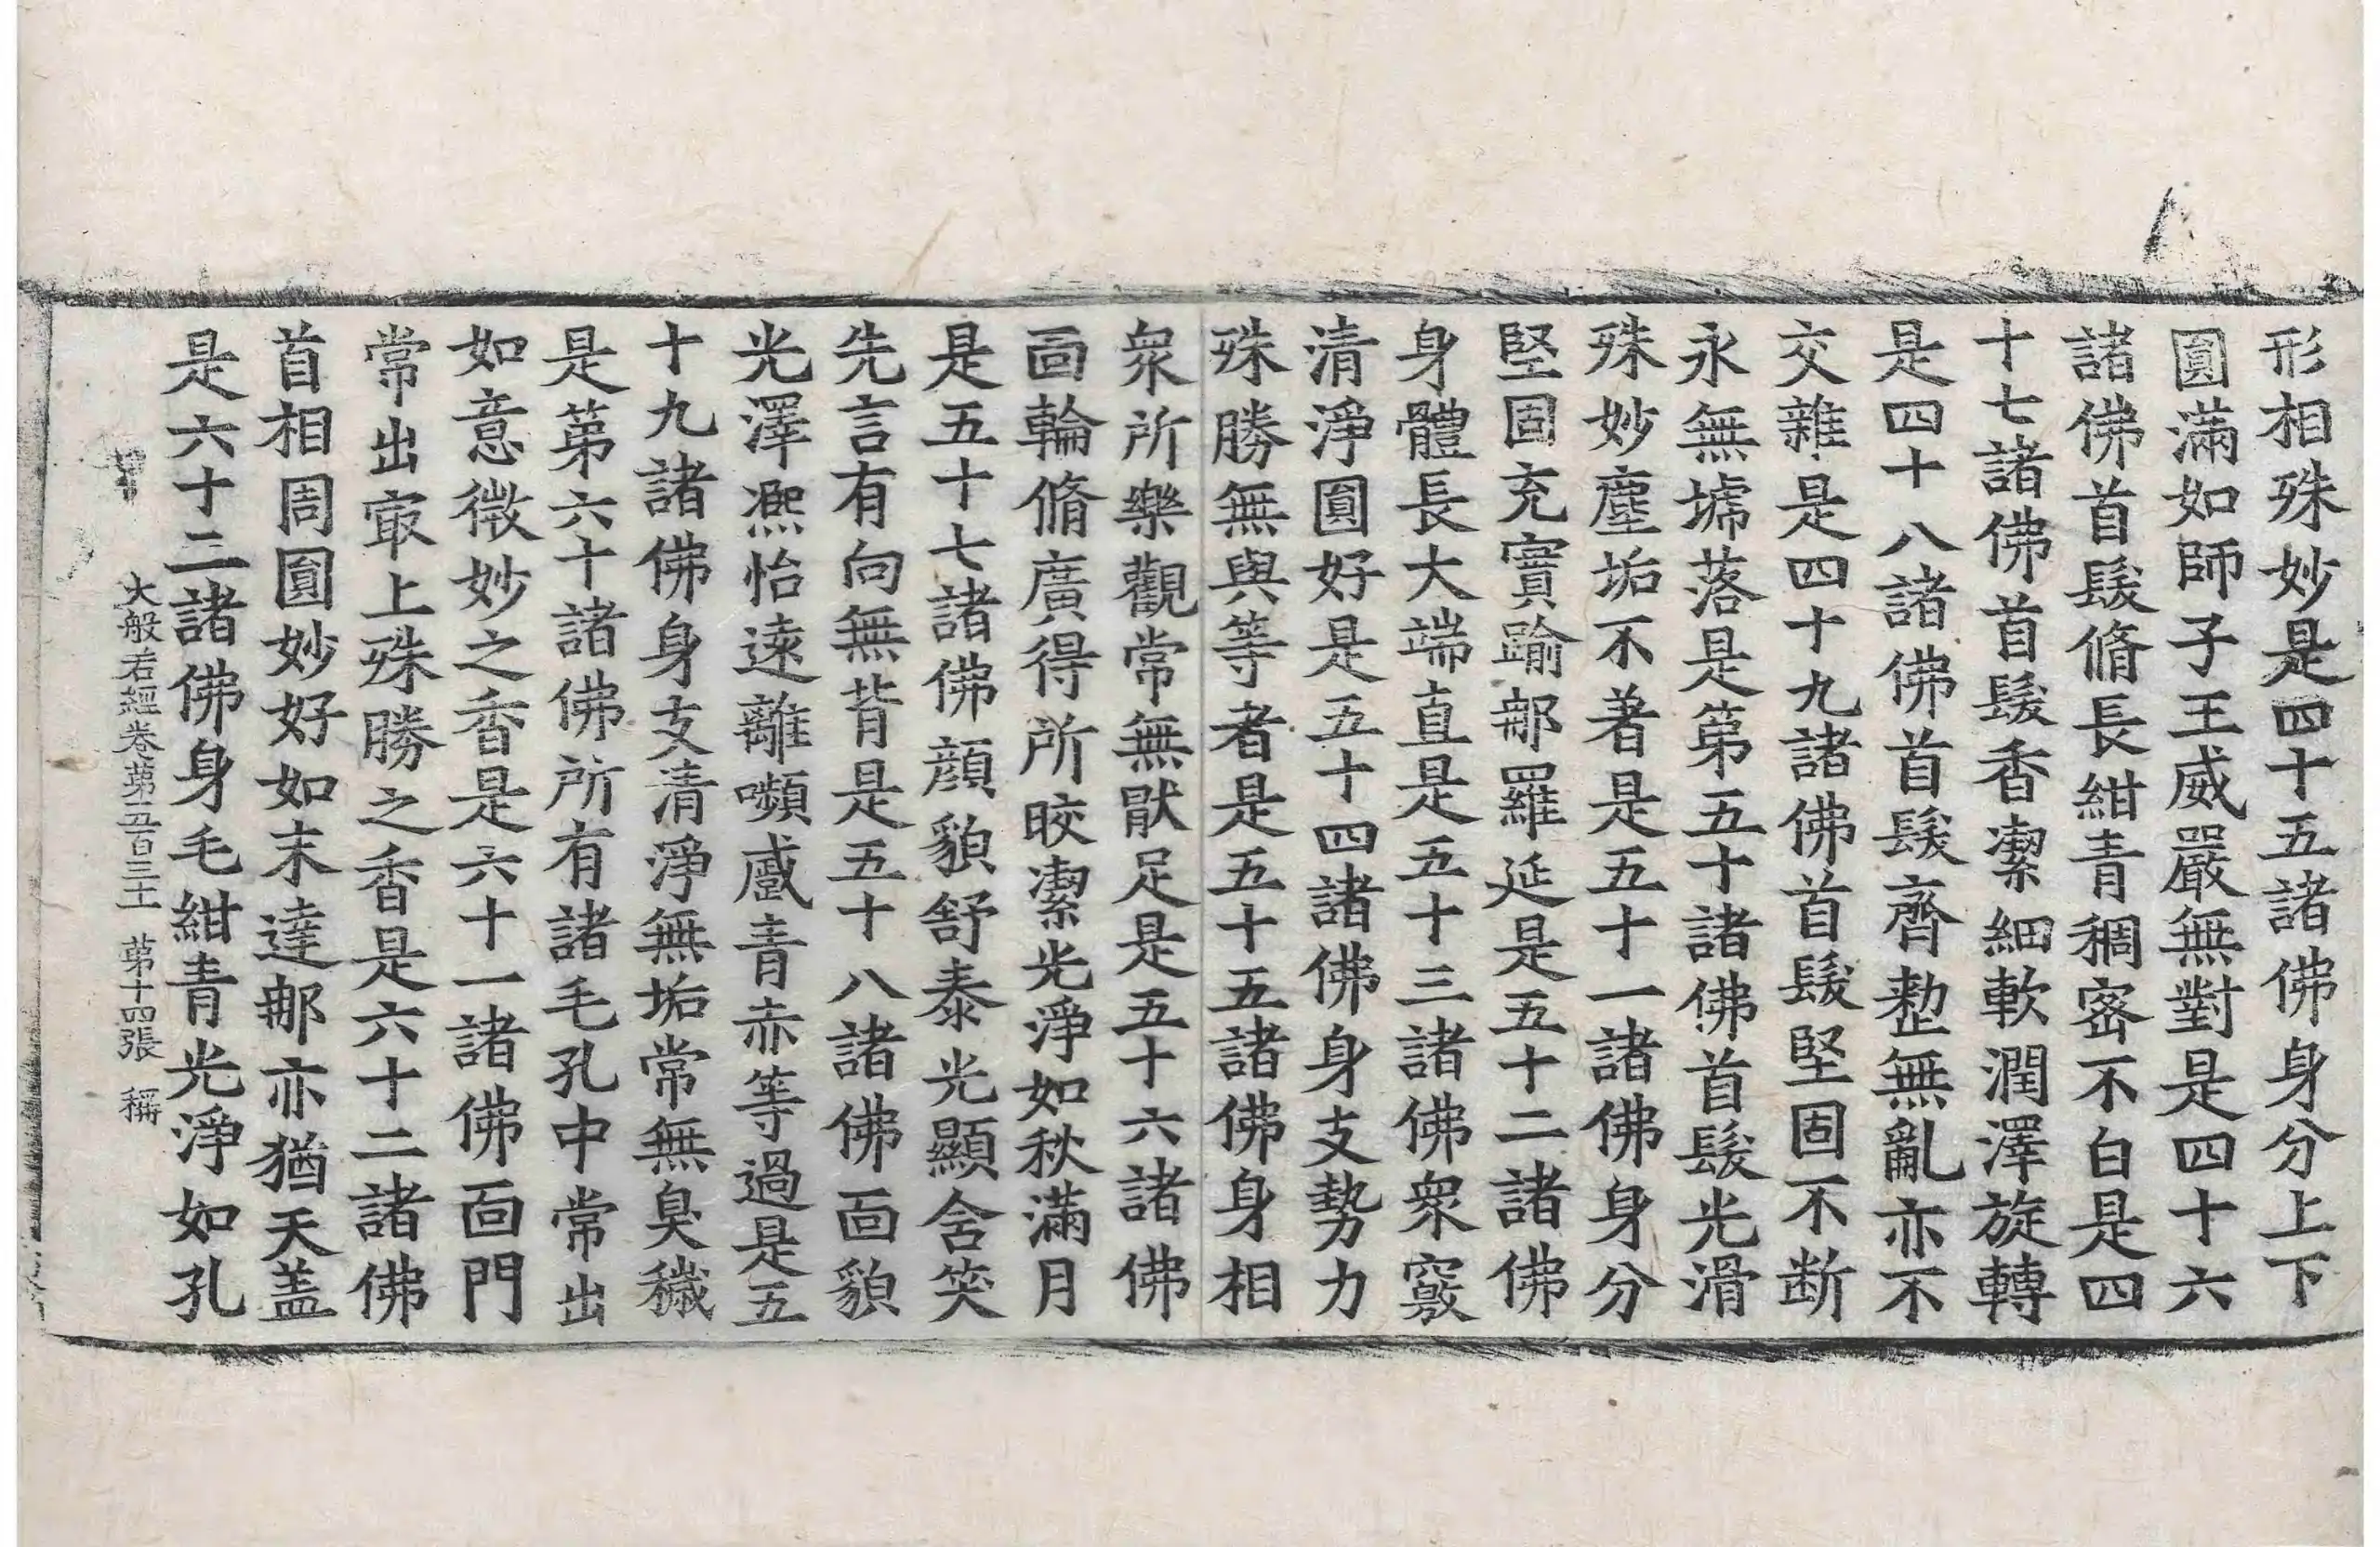 形相殊妙是四十五諸佛身分上下
圓滿如師子王威嚴無對是四十六
諸佛首髮脩長紺青稠密不白是四
十七諸佛首髮香潔細軟潤澤旋轉
是四十八諸佛首髮齊整無亂亦不
交雜是四十九諸佛首髮堅固不断
永無墆落是第五十諸佛首髮光滑
殊妙塵垢不著是五十一諸佛身分
堅固充實踰那羅延是五十二諸佛
身體長大端直是五十三諸佛衆竅
清淨圓好是五十四諸佛身支勢力
殊勝無與等者是五十五諸佛身相
衆所樂觀常無猒足是五十六諸佛
面輪脩廣得所晈潔光淨如秋滿月
是五十七諸佛顔貌舒泰光顯含笑
先言有向無背是五十八諸佛面貌
光澤熈怡遠離嚬蹙青赤等過是五
十九諸佛身支清淨無垢常無臭穢
是第六十諸佛所有諸毛孔中常出
如意微妙之香是六十一諸佛面門
常出㝡上殊勝之香是六十二諸佛
首相周圓妙好如末達那亦猶天盖
是六十三諸佛身毛紺青光淨如孔
大般若經卷苐五百三十一 苐十四張 稱